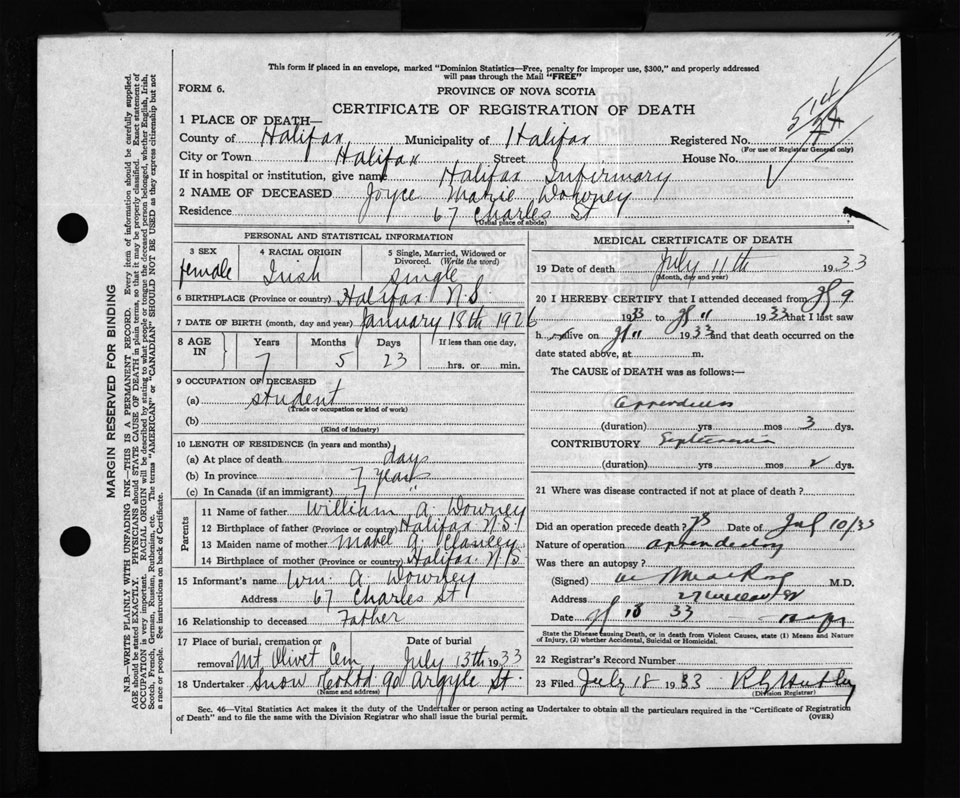 This form if placed in an envelope, marked "Dominion Statistics—Free, penalty for improper use, $300," and properly addressed
will pass through the Mail "FREE"
FORM 6.
PROVINCE OF NOVA SCOTIA
CERTIFICATE OF REGISTRATION OF DEATH
1 PLACE OF DEATH—
County of Halifax Municipality of Halifax Registered No.
(For use of Registrar General only)
City or Town Halifax Street House No.
If in hospital or institution, give name Halifax Infirmary
2 NAME OF DECEASED Joyce Marie Downey
Residence 67 Charles St
(Usual place of abode)
PERSONAL AND STATISTICAL INFORMATION
3 SEX 4 RACIAL ORIGIN 5 Single, Married, Widowed or
Divorced. (Write the word)
female Irish single
6 BIRTHPLACE (Province or country) Halifax N.S.
7 DATE OF BIRTH (month, day and year) January 18th 1926
8 AGE IN Years Months Days If less than one day,
7 5 23 hrs. or min.
9 OCCUPATION OF DECEASED
(a) student
(Trade or occupation or kind of work)
(b)
(Kind of industry)
10 LENGTH OF RESIDENCE (in years and months)
(a) At place of death days
(b) In province 7 years
(c) In Canada (if an immigrant) 7 "
Parents
11 Name of father William A. Downey
12 Birthplace of father (Province or country) Halifax N.S.
13 Maiden name of mother Mabel G.
14 Birthplace of mother (Province or country) Halifax N/S
15 Informant's name Wm. A. Downey
Address 67 Charles St
16 Relationship to deceased Father
17 Place of burial, cremation or Date of burial
removal Mt. Olivet Cem. July 13th 1933
18 Undertaker Snow & Co Ltd 90 Argyle St.
(Name and address)
MEDICAL CERTIFICATE OF DEATH
19 Date of death July 11th 1933
(Month, day and year)
20 I HEREBY CERTIFY that I attended deceased from Jy 9
1933 to Jy 11 1933 that I last saw
h alive on Jy 11 1933 and that death occurred on the
date stated above, at m.
The CAUSE of DEATH was as follows:—
appendicitis
(duration) yrs mos 3 dys.
CONTRIBUTORY Septicaemia
(duration) yrs mos 2 dys.
21 Where was disease contracted if not at place of death?
Did an operation precede death? Yes Date of Jul 10/33
Nature of operation
Was there an autopsy?
(Signed) M.D.
Address
Date 33
State the Disease causing Death, or in death from Violent Causes, state (1) Means and Nature
of Injury, (2) whether Accidental, Suicidal or Homicidal.
22 Registrar's Record Number
23 Filed July 18 1933
(Division Registrar)
Sec. 46—Vital Statistics Act makes it the duty of the Undertaker or person acting as Undertaker to obtain all the particulars required in the "Certificate of Registration
of Death" and to file the same with the Division Registrar who shall issue the burial permit.
(OVER)
MARGIN RESERVED FOR BINDING
N.B.—WRITE PLAINLY WITH UNFADING INK—THIS IS A PERMANENT RECORD. Every item of information should be carefully supplied.
AGE should be stated EXACTLY. PHYSICIANS should STATE CAUSE OF DEATH in plain terms, so that it may be properly classified. Exact statement of
OCCUPATION is very important. RACIAL ORIGIN will be described by stating to what people or tongue the deceased person belonged, whether English, Irish,
Scotch, French, German, Russian, Ruthenian, etc. The terms "AMERICAN" or "CANADIAN" SHOULD NOT BE USED as they express citizenship but not
a race or people. See instructions on back of Certificate.